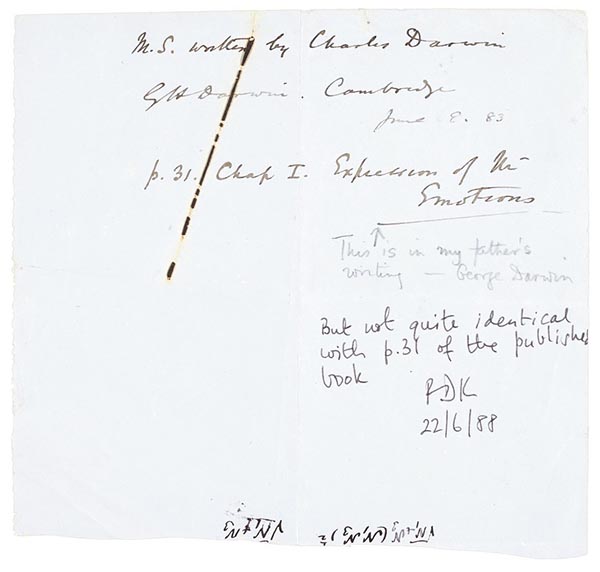 M.S. written by Charles Darwin
G H Darwin. Cambridge
June 8. 83
p. 31. Chap I. Expression of the
Emotions
This is in my father's
writing — George Darwin
But not quite identical
with p.31 of the published
book
RDK
22/6/88